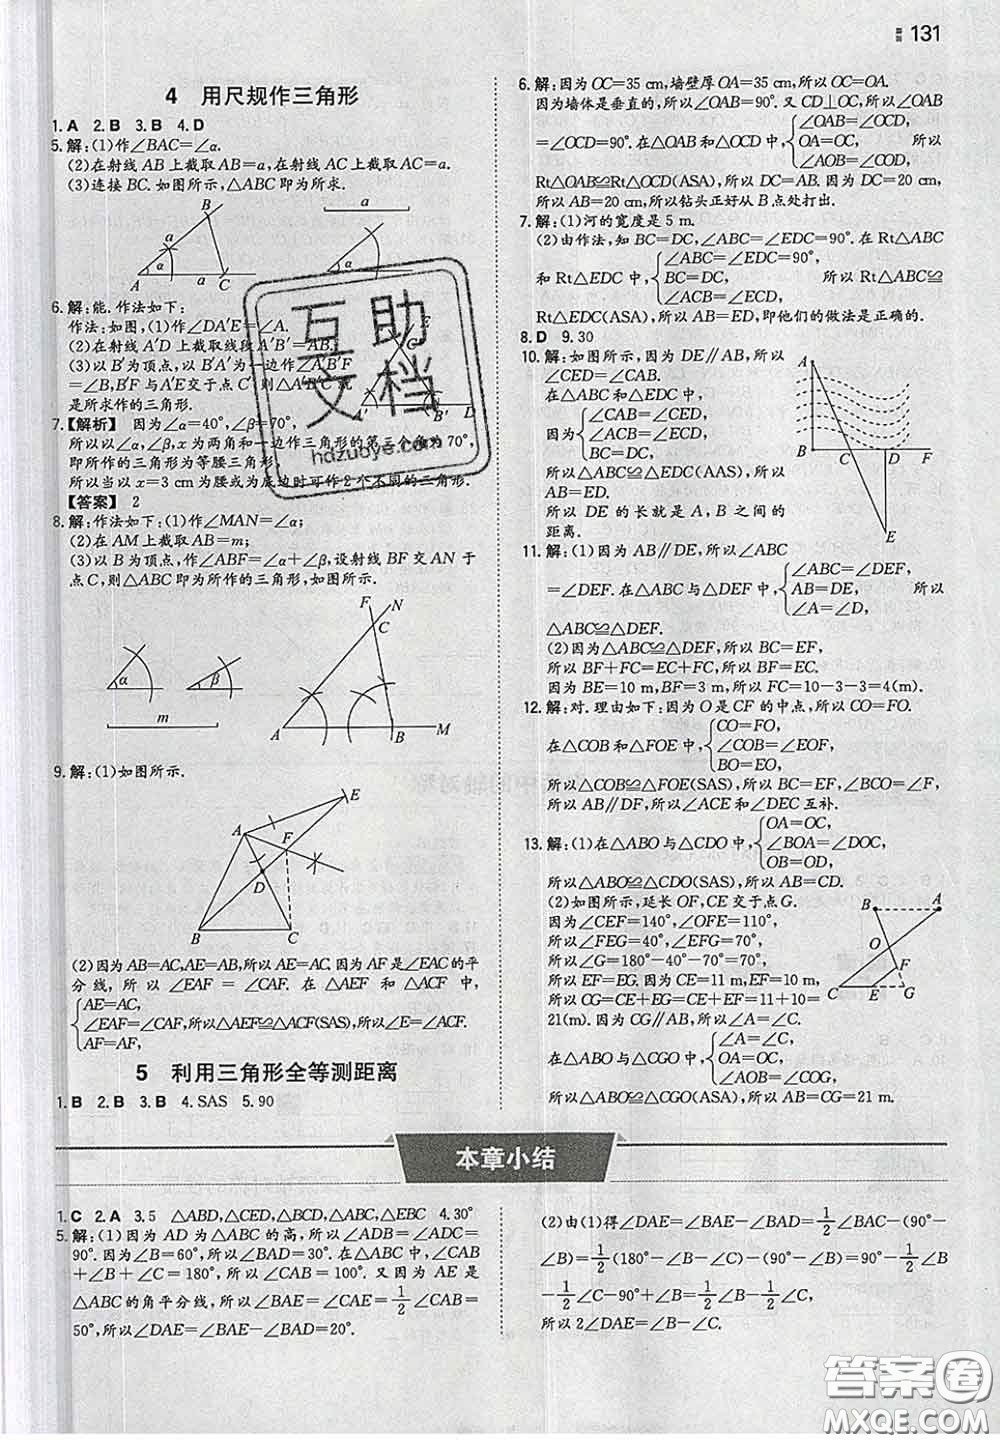 131
4 用尺规作三角形
1.A 2.B 3.B 4.D
5.解:(1)作∠BAC=∠α.
(2)在射线AB上截取AB=a,在射线AC上截取AC=a.
(3)连接BC.如图所示,△ABC即为所求.
B
a
a
α
A
a
C
α
6.解:能.作法如下:
作法:如图,(1)作∠DA′E=∠A.
(2)在射线A′D上截取线段A′B′=AB.
(3)以B′为顶点,以B′A′为一边作∠A′B′F
=∠B,B′F与A′E交于点C′,则△A′B′C′就
是所求作的三角形.
E
A′
B′
D
7.【解析】 因为∠α=40°,∠β=70°,
所以以∠α,∠β,x为两角和一边作三角形的第三个角为70°,
即所作的三角形为等腰三角形,
所以当以x=3 cm为腰或为底边时可作2个不同的三角形.
【答案】 2
8.解:作法如下:(1)作∠MAN=∠α;
(2)在AM上截取AB=m;
(3)以B为顶点,作∠ABF=∠α+∠β,设射线BF交AN于
点C,则△ABC即为所作的三角形,如图所示.
F
N
C
α
β
m
A
B
M
9.解:(1)如图所示.
E
A
F
D
B
C
(2)因为AB=AC,AE=AB,所以AE=AC.因为AF是∠EAC的平
分线,所以∠EAF=∠CAF.在△AEF和△ACF中,
AE=AC,
∠EAF=∠CAF,所以△AEF≌△ACF(SAS),所以∠E=∠ACF.
AF=AF,
5 利用三角形全等测距离
1.B 2.B 3.B 4.SAS 5.90
6.解:因为OC=35 cm,墙壁厚OA=35 cm,所以OC=OA.
因为墙体是垂直的,所以∠OAB=90°.又CD⊥OC,所以∠OAB
=∠OCD=90°.在△OAB和△OCD中,
∠OAB=∠OCD,
OA=OC,
∠AOB=∠COD,
Rt△OAB≌Rt△OCD(ASA),所以DC=AB.因为DC=20 cm,
所以AB=20 cm,所以钻头正好从B点处打出.
7.解:(1)河的宽度是5 m.
(2)由作法,知BC=DC,∠ABC=∠EDC=90°.在Rt△ABC
和Rt△EDC中,
∠ABC=∠EDC=90°,
BC=DC,
∠ACB=∠ECD,
所以Rt△ABC≌
Rt△EDC(ASA),所以AB=ED,即他们的做法是正确的.
8.D 9.30
10.解:如图所示,因为DE∥AB,所以
∠CED=∠CAB.
在△ABC和△EDC中,
因为
∠CAB=∠CED,
∠ACB=∠ECD,
BC=DC,
所以△ABC≌△EDC(AAS),所以
AB=ED.
所以DE的长就是A,B之间的
距离.
A
B
C
D
F
E
11.解:(1)因为AB∥DE,所以∠ABC
=∠DEF.在△ABC与△DEF中,
∠ABC=∠DEF,
AB=DE,
∠A=∠D,
所以
△ABC≌△DEF.
(2)因为△ABC≌△DEF,所以BC=EF,
所以BF+FC=EC+FC,所以BF=EC.
因为BE=10 m,BF=3 m,所以FC=10-3-3=4(m).
12.解:对.理由如下:因为O是CF的中点,所以CO=FO.
在△COB和△FOE中,
CO=FO,
∠COB=∠EOF,
BO=EO,
所以△COB≌△FOE(SAS),所以BC=EF,∠BCO=∠F,
所以AB∥DF,所以∠ACE和∠DEC互补.
13.解:(1)在△ABO与△CDO中,
OA=OC,
∠BOA=∠DOC,
OB=OD,
所以△ABO≌△CDO(SAS),所以AB=CD.
(2)如图所示,延长OF,CE交于点G.
因为∠CEF=140°,∠OFE=110°,
所以∠FEG=40°,∠EFG=70°,
所以∠G=180°-40°-70°=70°,
所以EF=EG.因为CE=11 m,EF=10 m,
所以CG=CE+EG=CE+EF=11+10=
21(m).因为CG∥AB,所以∠A=∠C.
B
A
O
F
C
E
G
在△ABO与△CGO中,
∠A=∠C,
OA=OC,
∠AOB=∠COG,
所以△ABO≌△CGO(ASA),所以AB=CG=21 m.
本章小结
1.C 2.A 3.5 △ABD,△CED,△BCD,△ABC,△EBC 4.30°
5.解:(1)因为AD为△ABC的高,所以∠ADB=∠ADC=
90°.因为∠B=60°,所以∠BAD=30°.在△ABC中,∠CAB
+∠B+∠C=180°,所以∠CAB=100°.又因为AE是
△ABC的角平分线,所以∠BAE=∠CAE=1/2∠CAB=
50°,所以∠DAE=∠BAE-∠BAD=20°.
(2)由(1)得∠DAE=∠BAE-∠BAD=1/2∠BAC-(90°-
∠B)=1/2(180°-∠B-∠C)-(90°-∠B)=90°-1/2∠B
-1/2∠C-90°+∠B=1/2∠B-1/2∠C,
所以2∠DAE=∠B-∠C.
互助
文档
hdzuoye.com
答案圈
MXQE.COM